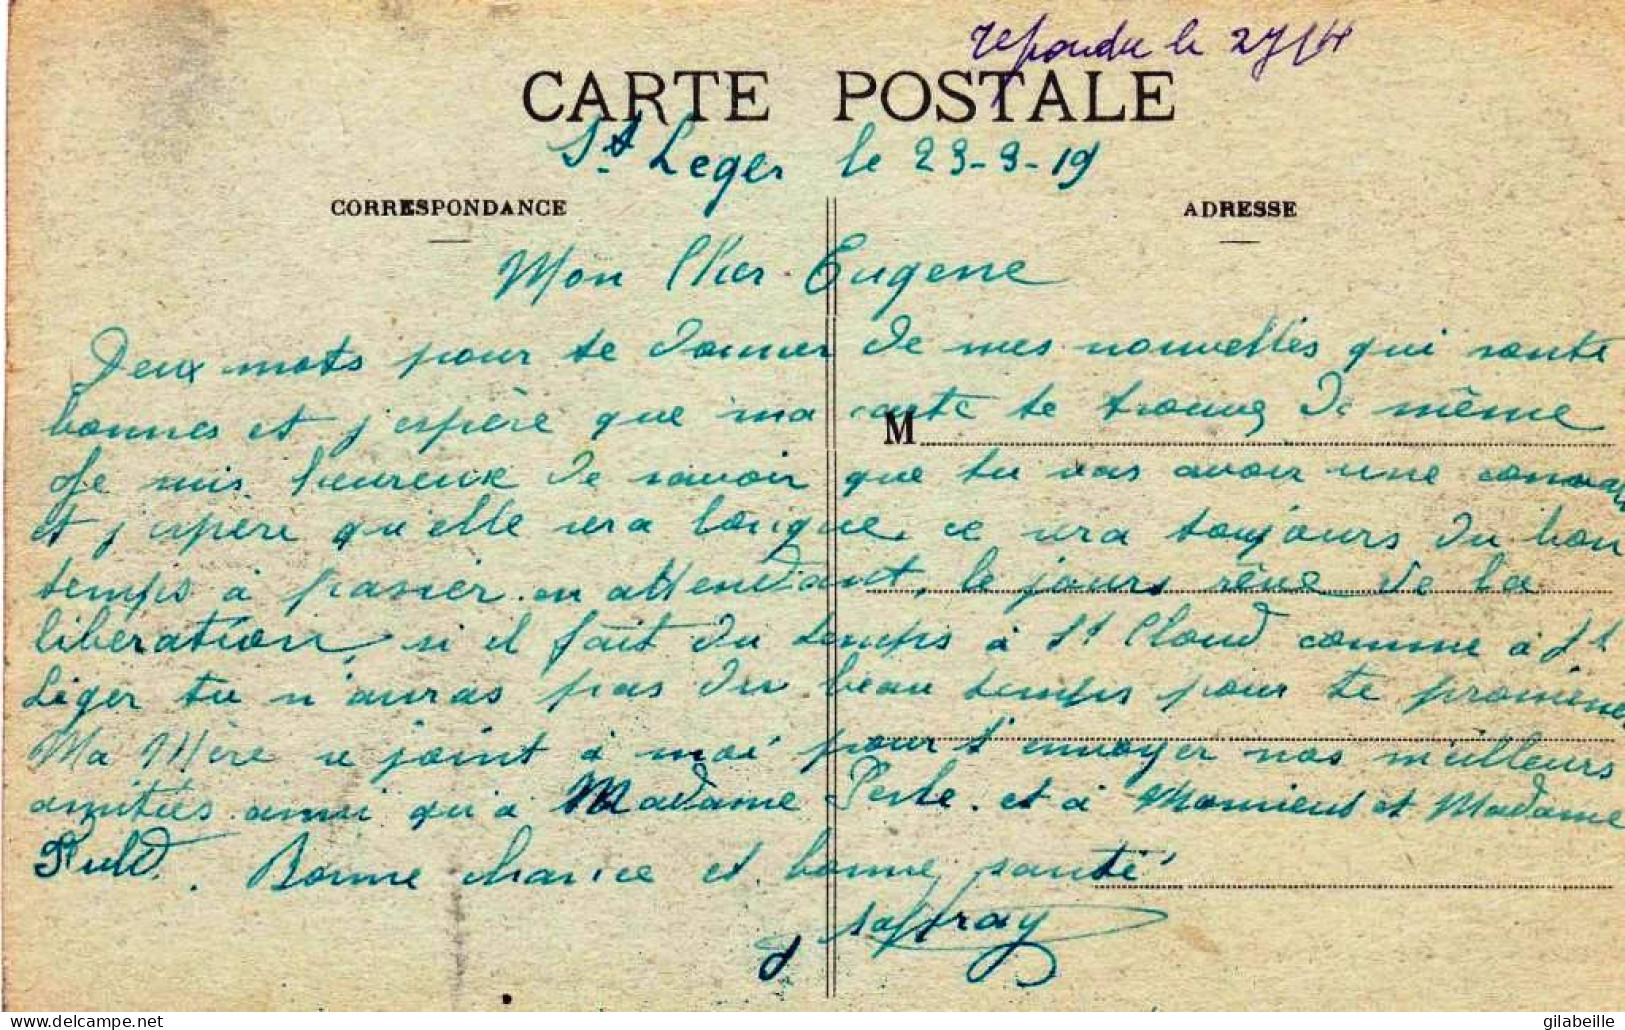 repondu le 27/4
CARTE POSTALE
St Leger le 23-3-19
CORRESPONDANCE
ADRESSE
Mon Cher Eugene
Deux mots pour te donner de mes nouvelles qui sont
bonnes et j'espère que ma carte te trouve de même
M
Je suis heureux de savoir que tu vas avoir une conval
et j'espere qu'elle sera longue, ce sera toujours du bon
temps à passer en attendant, le jours rêve de la
libération, si il fait du temps à St Cloud comme à St
Léger tu n'auras pas du beau temps pour te promener
Ma Mère se joint à moi pour t'envoyer nos meilleurs
amitiés ainsi qu'à Madame Perle. et à Monsieur et Madame
Bonne chance et bonne santé
Saffray
gilabeille